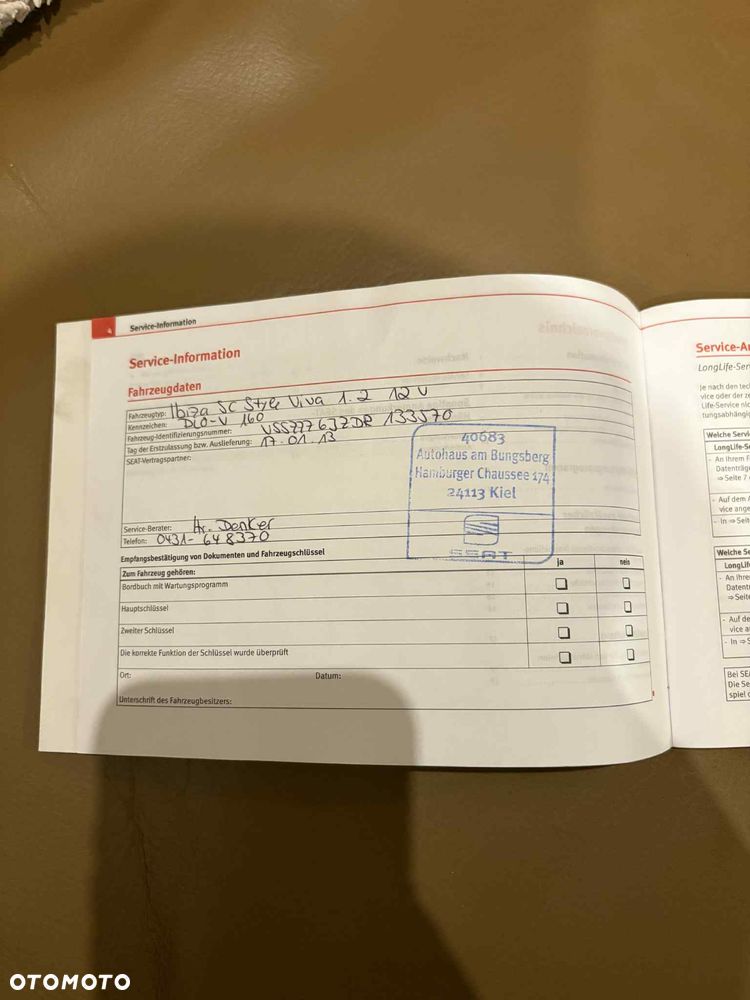 4
Service-Information
Service-Information
Fahrzeugdaten
Fahrzeugtyp: Ibiza SC Style Viva 1.2 12V
Kennzeichen: DLO-V 160
Fahrzeug-Identifizierungsnummer: VSSZZZ6JZDR 133570
Tag der Erstzulassung bzw. Auslieferung: 17.01.13
SEAT-Vertragspartner:
40683
Autohaus am Bungsberg
Hamburger Chaussee 174
24113 Kiel
SEAT
Service-Berater: Hr. Denker
Telefon: 0431-648370
Empfangsbestätigung von Dokumenten und Fahrzeugschlüssel
Zum Fahrzeug gehören: ja nein
Bordbuch mit Wartungsprogramm
Hauptschlüssel
Zweiter Schlüssel
Die korrekte Funktion der Schlüssel wurde überprüft
Ort: Datum:
Unterschrift des Fahrzeugbesitzers:
Service-A
LongLife-Ser
Je nach den tec
vice oder der ze
Life-Service nic
tungsabhängig
Welche Servi
LongLife-Se
- An Ihrem F
Datenträge
⇒ Seite 7
- Auf dem A
vice ange
- In ⇒ Seit
Welche Se
LongLif
- An Ihre
Datent
⇒ Seite
- Auf de
vice a
- In ⇒ S
Bei SE
Die Se
spiel
OTOMOTO